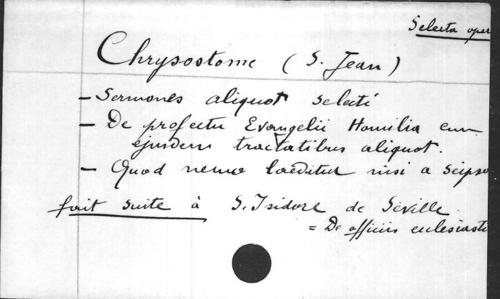 Selecta oper
Chrysostome (S. Jean)
- Sermones aliquot selecti
- De profectu Evangelii Homilia cum
ejusdem tractatibus aliquot.
- Quod nemo laeditur nisi a seipso
fait suite à S. Isidore de Séville
= De officiis ecclesiasti